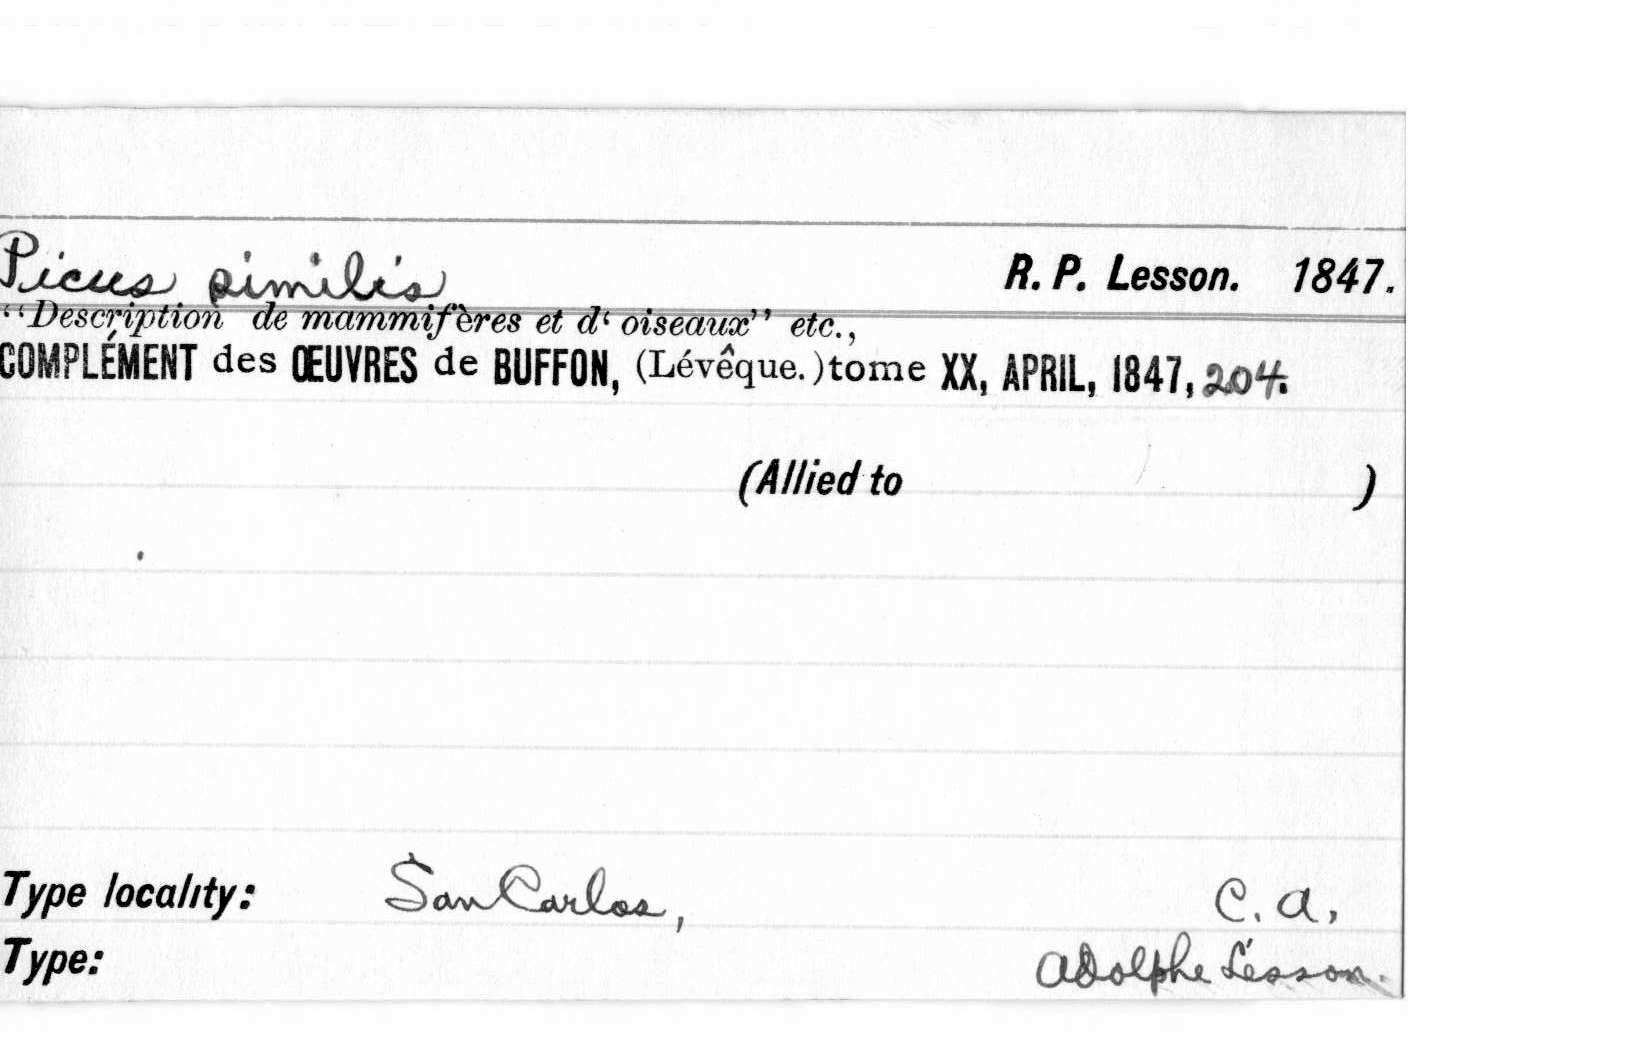 Picus similis R. P. Lesson. 1847.
"Description de mammifères et d' oiseaux" etc.,
COMPLÉMENT des ŒUVRES de BUFFON, (Lévêque.) tome XX, APRIL, 1847, 204.
(Allied to )
Type locality: San Carlos, C. A,
Type: Adolphe Lesson.